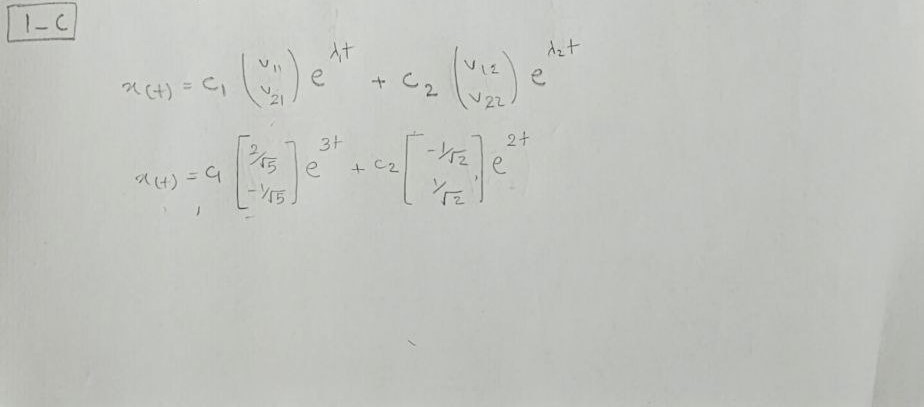 1-C
x(t) = c₁ (v₁₁ v₂₁) e^{λ₁t} + c₂ (v₁₂ v₂₂) e^{λ₂t}
x(t) = c₁ [2/√5 -1/√5] e^{3t} + c₂ [-1/√2 1/√2] e^{2t}